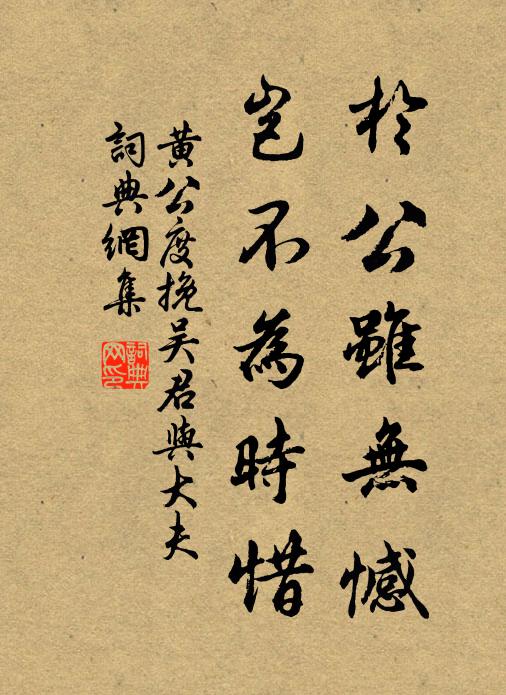 於公雖無憾
豈不為時惜
黄公度挽吴君與大夫
詞典網集
詞典網印